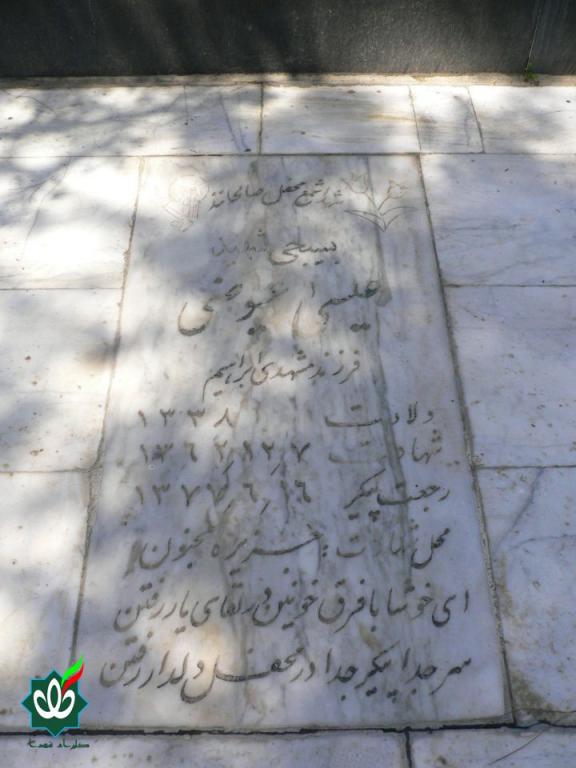 شهدا شمع محفل صالحانند
بسیجی شهید
عیسی عیوضی
فرزند مشهدی ابراهیم
ولادت ۱۳۳۸
شهادت ۱۳۶۲٫۱۲٫۷
رجعت پیکر ۱۳۷۷٫۶٫۱۶
محل شهادت جزیره مجنون
ای خوشا با فرق خونین در لقای یار رفتن
سر جدا پیکر جدا در محفل دلدار رفتن